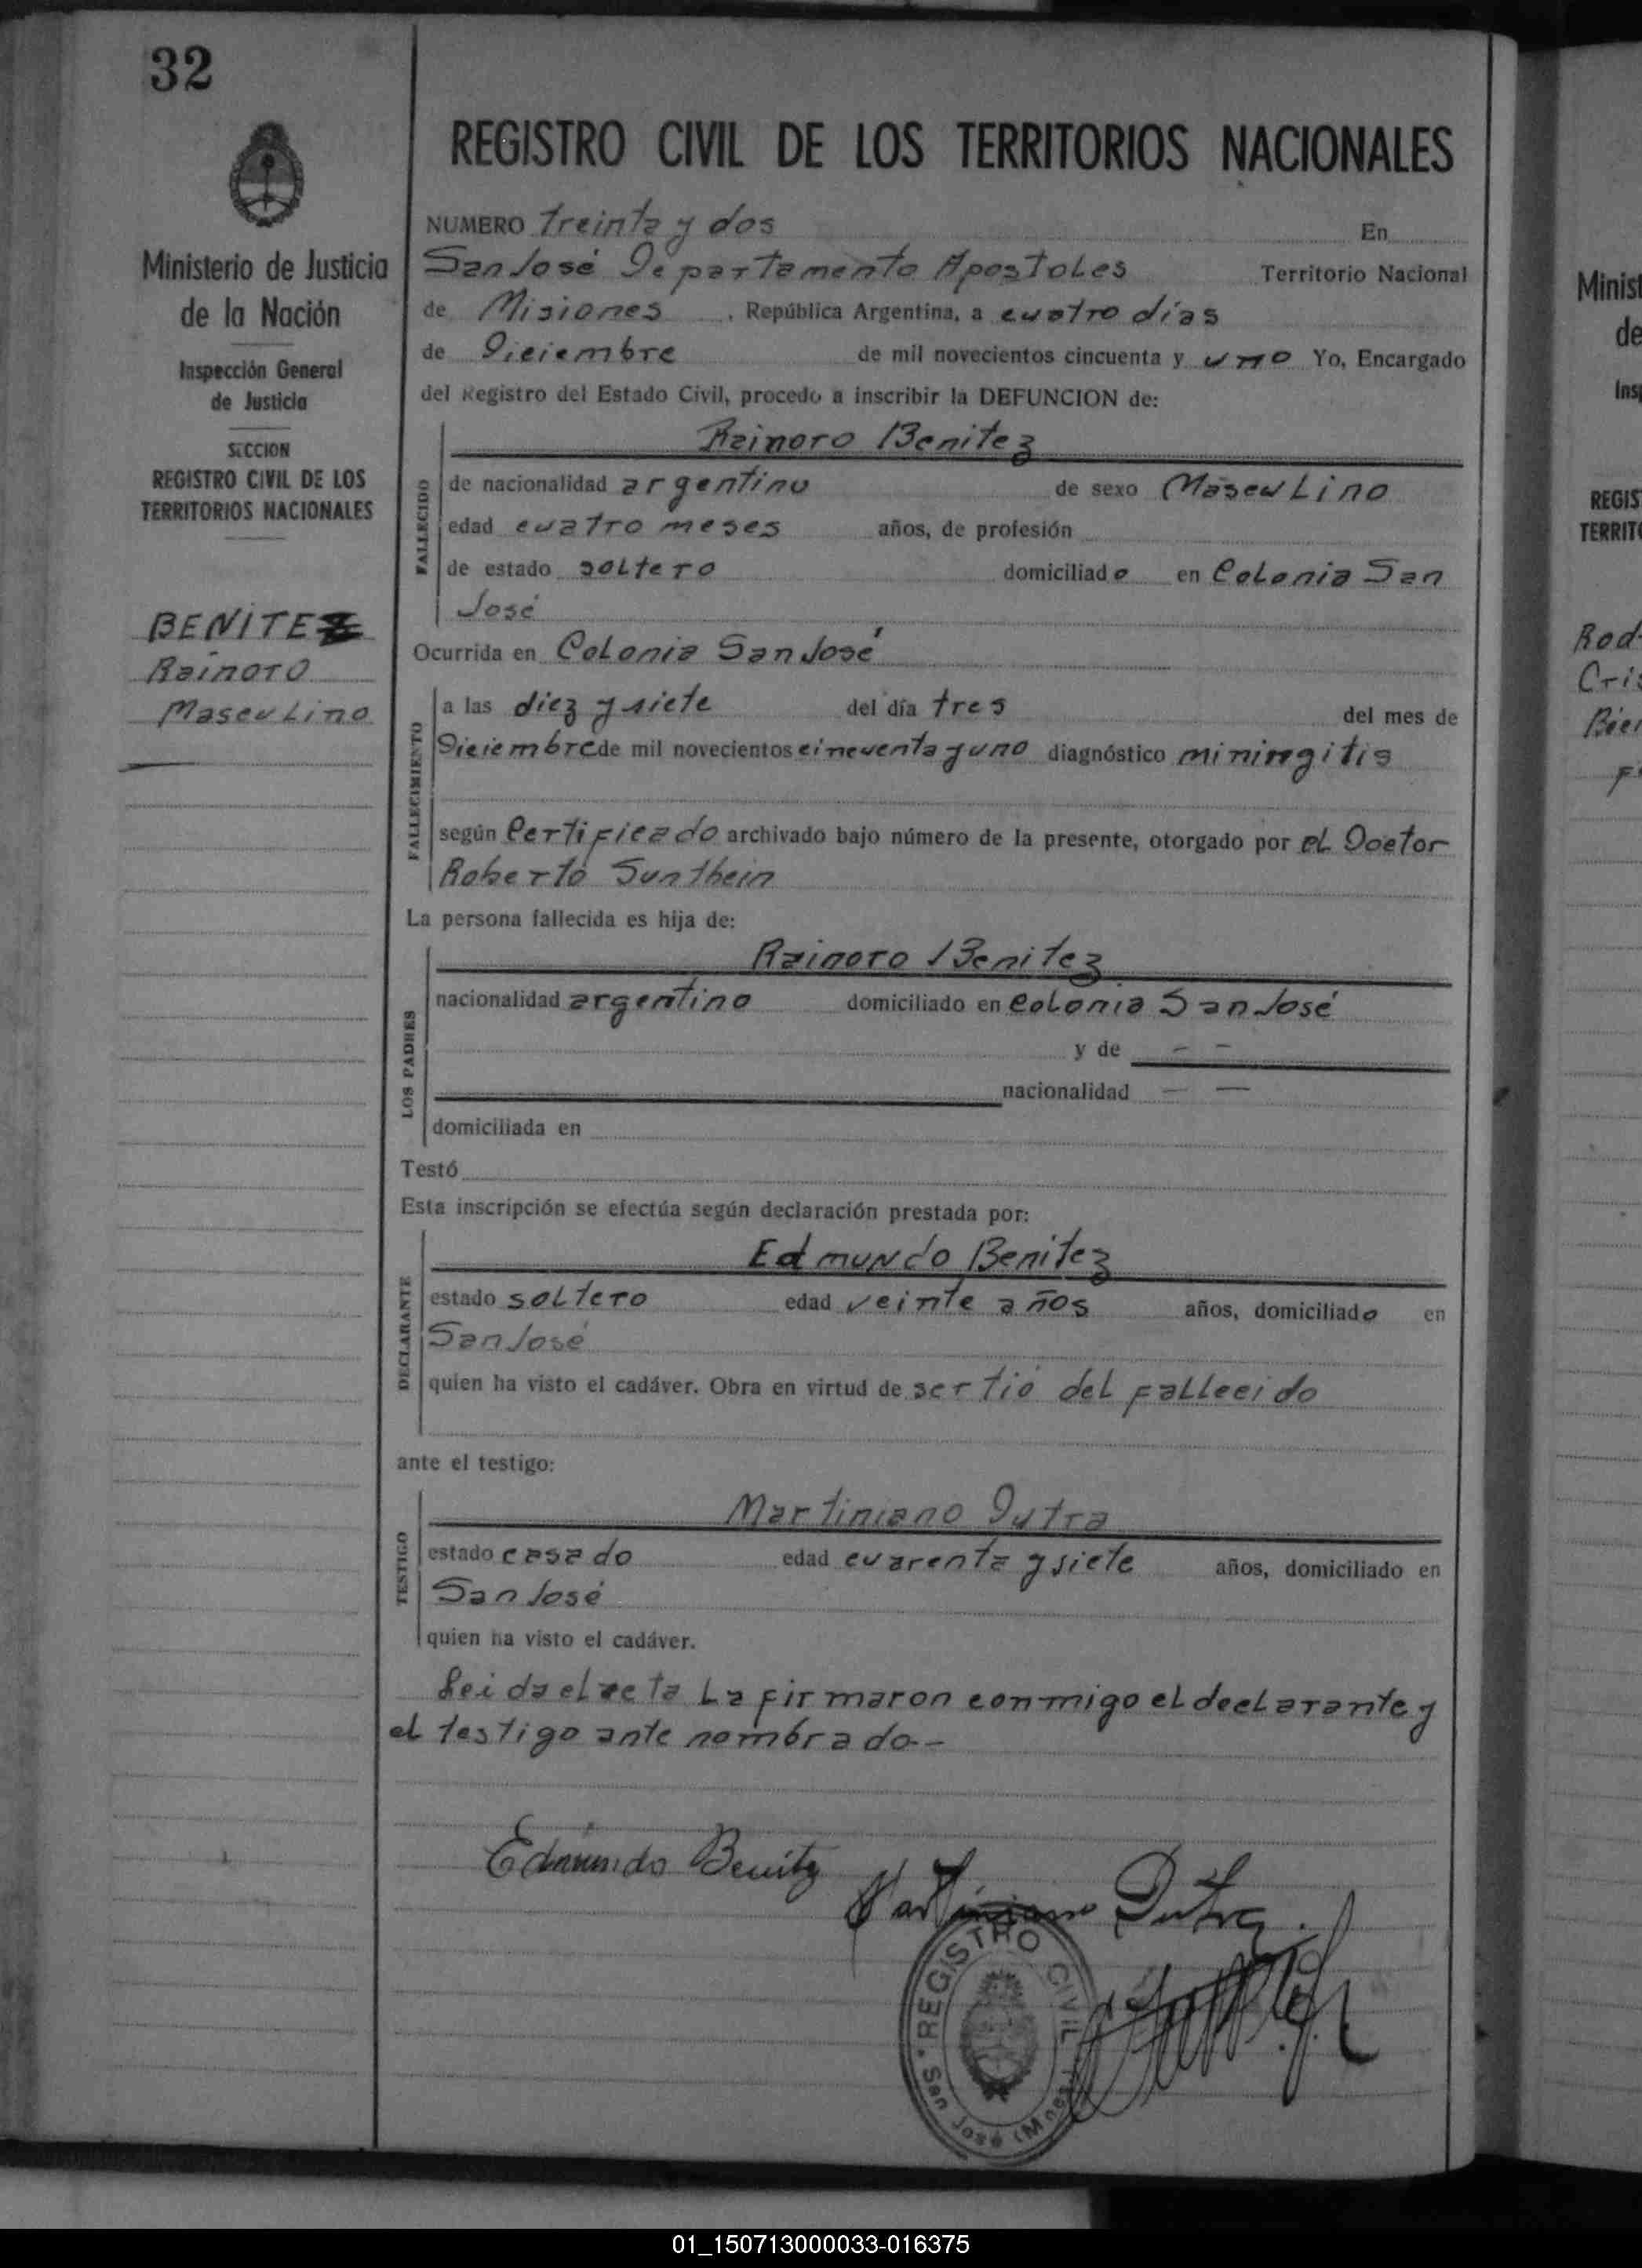 32
REGISTRO CIVIL DE LOS TERRITORIOS NACIONALES
Ministerio de Justicia
de la Nación
Inspección General
de Justicia
SECCION
REGISTRO CIVIL DE LOS
TERRITORIOS NACIONALES
BENITEZ
Rainoro
Masculino
NUMERO treinta y dos En
San José Departamento Apostoles Territorio Nacional
de Misiones, República Argentina, a cuatro días
de Diciembre de mil novecientos cincuenta y uno Yo, Encargado
del Registro del Estado Civil, procedo a inscribir la DEFUNCION de:
Rainoro Benitez
FALLECIDO
de nacionalidad argentino de sexo Masculino
edad cuatro meses años, de profesión
de estado soltero domiciliado en Colonia San
José
Ocurrida en Colonia San José
FALLECIMIENTO
a las diez y siete del día tres del mes de
Diciembre de mil novecientos cincuenta y uno diagnóstico miningitis
según Certificado archivado bajo número de la presente, otorgado por el Doctor
Roberto Sunthein
La persona fallecida es hija de:
LOS PADRES
Rainoro Benitez
nacionalidad argentino domiciliado en Colonia San José
y de - -
nacionalidad - -
domiciliada en
Testó
Esta inscripción se efectúa según declaración prestada por:
DECLARANTE
Edmundo Benitez
estado soltero edad veinte años años, domiciliado en
San José
quien ha visto el cadáver. Obra en virtud de ser tió del fallecido
ante el testigo:
TESTIGO
Martiniano Dutra
estado casado edad cuarenta y siete años, domiciliado en
San José
quien ha visto el cadáver.
Leida el acta la firmaron conmigo el declarante y
el testigo ante nombrado.-
Edmundo Benitez
Martiniano Dutra.
REGISTRO CIVIL
San José (Mnes)
Minist
de
Ins
REGIS
TERRIT
Rod
Cris
01_150713000033-016375